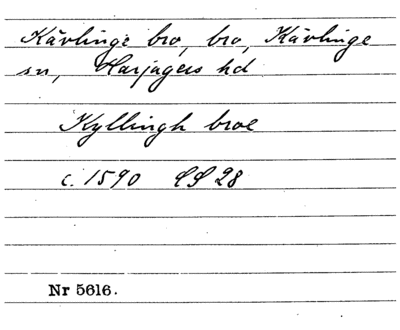 Kävlinge bro, bro, Kävlinge
sn, Harjagers hd
Kyllingh broe
c. 1590 LS 28
Nr 5616.